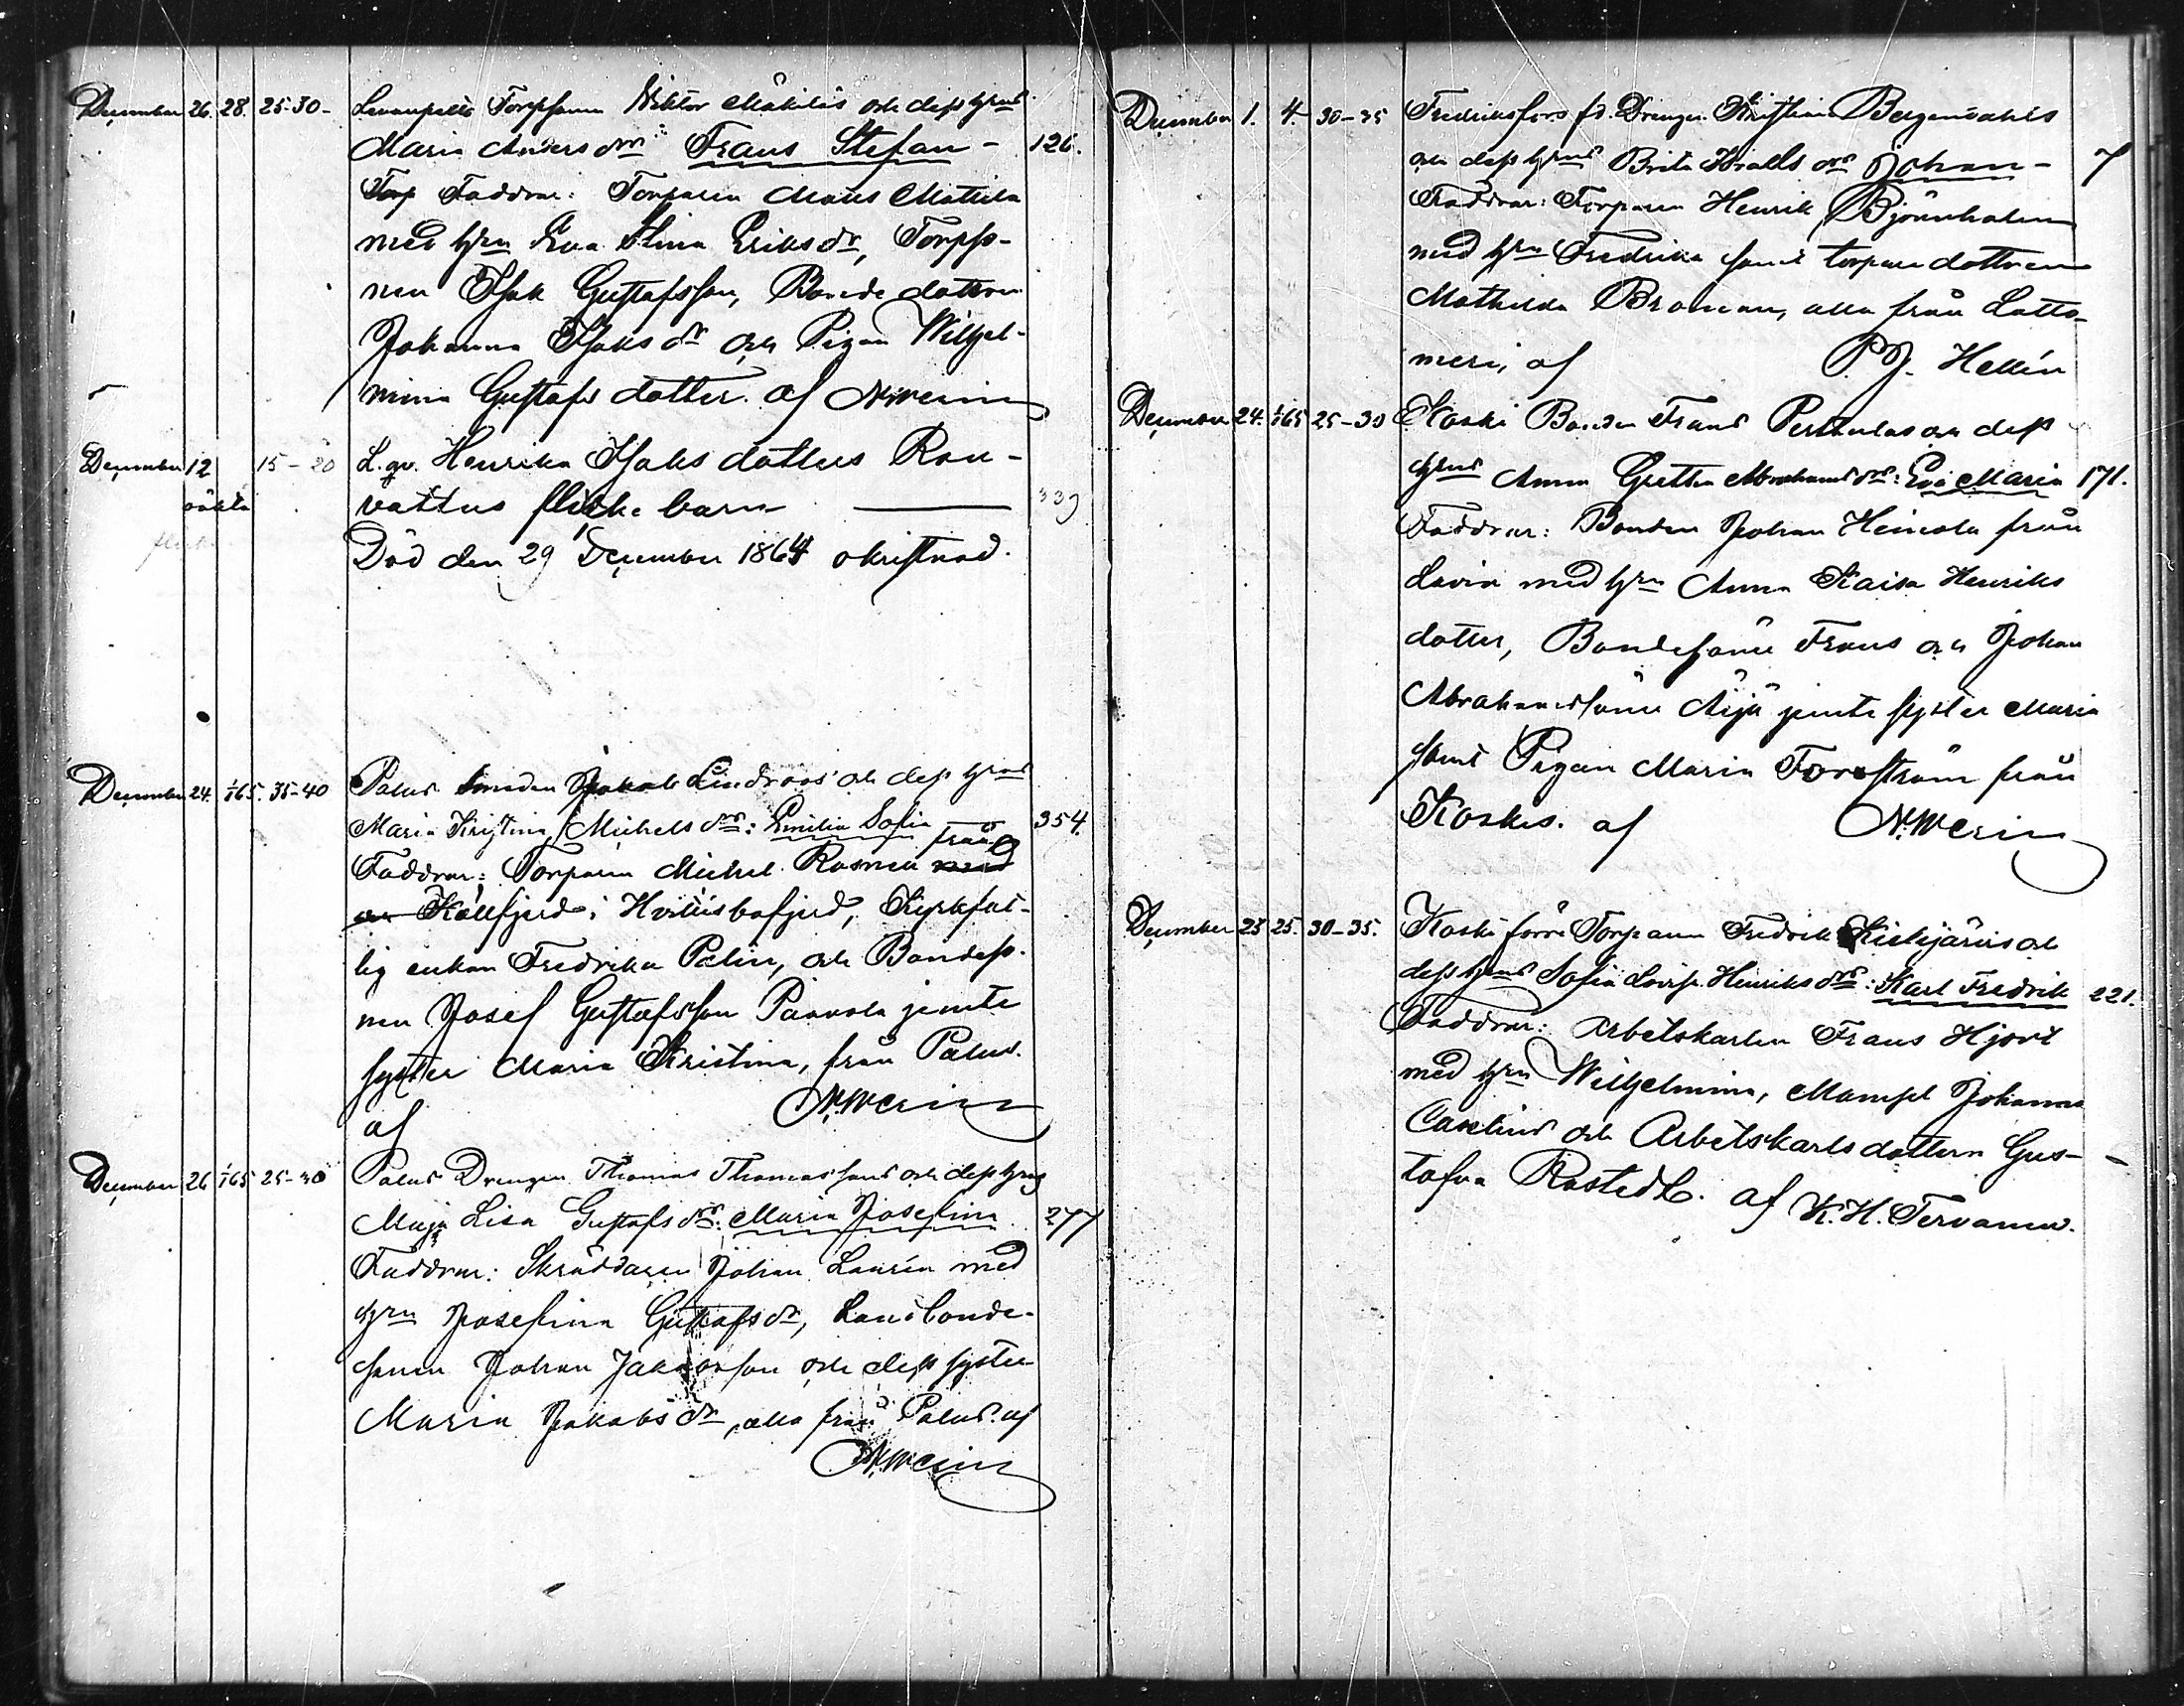 December 26. 28. 25-30- Torpsonen Wiktor Mäkiläs och dess hrus
Maria Anders drs: Frans Stefan - 126.
Torp Faddrar: Torparen Måns Mattila
med hru Eva Stina Eriks dr, Torpso-
nen Isak Gustafsson, Bonde dottren
Johanna Isaks dr och Pigan Wilhel-
mina Gustafs dotter. af
December 12 15-20 L. qv. Henrika Isaks dotters Rau-
oäkta vattus flicke barn 339
flicka
Död den 29 December 1864 okristnad.
December 24. 1/1 65. 35-40 Palus Smeden Jakob Lindroos och dess hrus
Maria Kristina Michels drs: Emilia Sofia 354.
från
Faddrar: Torparen Michel Rosnell med
Källfjerd i Hvittisbofjerd, Kyrkfat-
tig enkan Fredrika Palin, och Bondeso-
nen Josef Gustafsson Paavola jemte
syster Maria Kristina, från Palus.
af
December 26 1/1 65 25-30 Palus Drengen Thomas Thomassons och dess hrus
Maja Lisa Gustafs drs: Maria Josefina 277
Faddrar: Skräddaren Johan Laurén med
hru Josefina Gustafs dr, Landbonde-
sonen Johan Jakobsson och dess syster
Maria Jakobs dr, alla från Palus. af
December 1. 4. 30-35 Fredriksfors fd. Drengen Kristian Bergendahls
och dess hrus Brita drs Johan - 7
Faddrar: Torparen Henrik Björnholm
med hru Fredrika samt torpare dottren
Mathilda Broman, alla från Latto-
meri, af P.J. Hellén
December 24. 1/1 65 25-30 Koski Bonden Frans Perttulas och dess
hrus Anna Gretta Abrahams drs: Eva Maria 171.
Faddrar: Bonden Johan Heinola från
Lavia med hru Anna Kaisa Henriks
dotter, Bondesöner Frans och Johan
Abrahamssöner Äijä jemte syster Maria
samt Pigan Maria Forsström från
Koskis. af
December 23 25. 30-35. Koski förre Torparen Fredrik och
dess hrus Sofia Lovisa Henriks drs: Karl Fredrik 221.
Faddrar: Arbetskarlen Frans Hjort
med hru Wilhelmina, Mamsel Johanna
och Arbetskarls dottern Gus-
tafva Rostedt. af K.H. Tervanen.